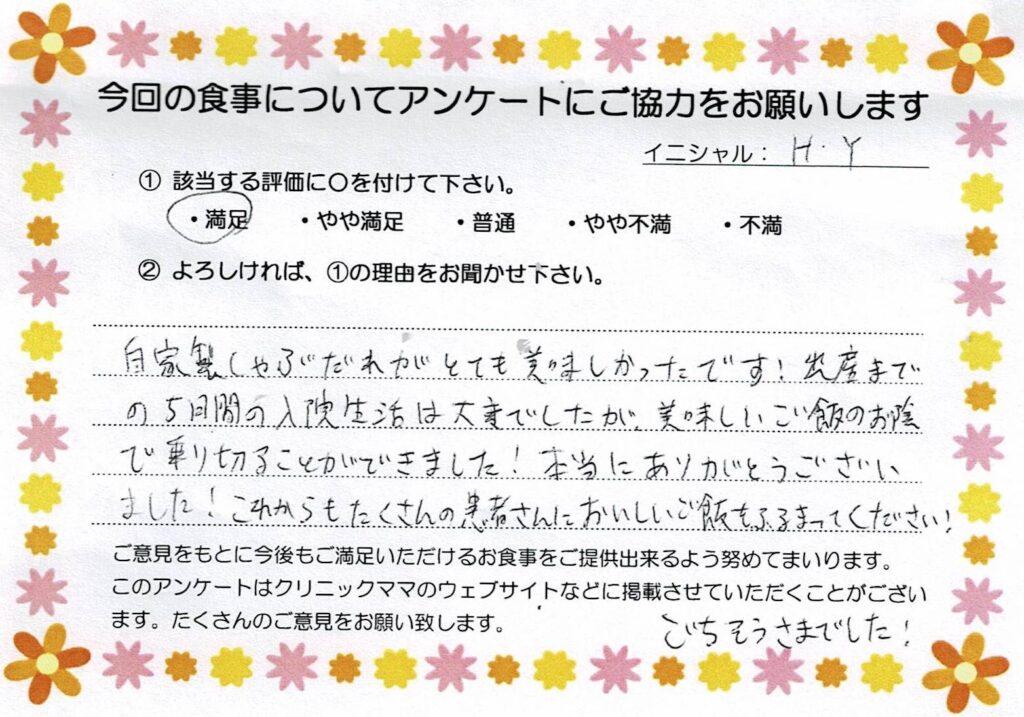 今回の食事についてアンケートにご協力をお願いします
イニシャル： H.Y
① 該当する評価に〇を付けて下さい。
・満足 ・やや満足 ・普通 ・やや不満 ・不満
② よろしければ、①の理由をお聞かせ下さい。
自家製しゃぶだれがとても美味しかったです！出産まで
の5日間の入院生活は大変でしたが、美味しいご飯のお陰
で乗り切ることができました！本当にありがとうござい
ました！これからもたくさんの患者さんにおいしいご飯をふるまってください！
ご意見をもとに今後もご満足いただけるお食事をご提供出来るよう努めてまいります。
このアンケートはクリニックママのウェブサイトなどに掲載させていただくことがござい
ます。たくさんのご意見をお願い致します。
ごちそうさまでした！